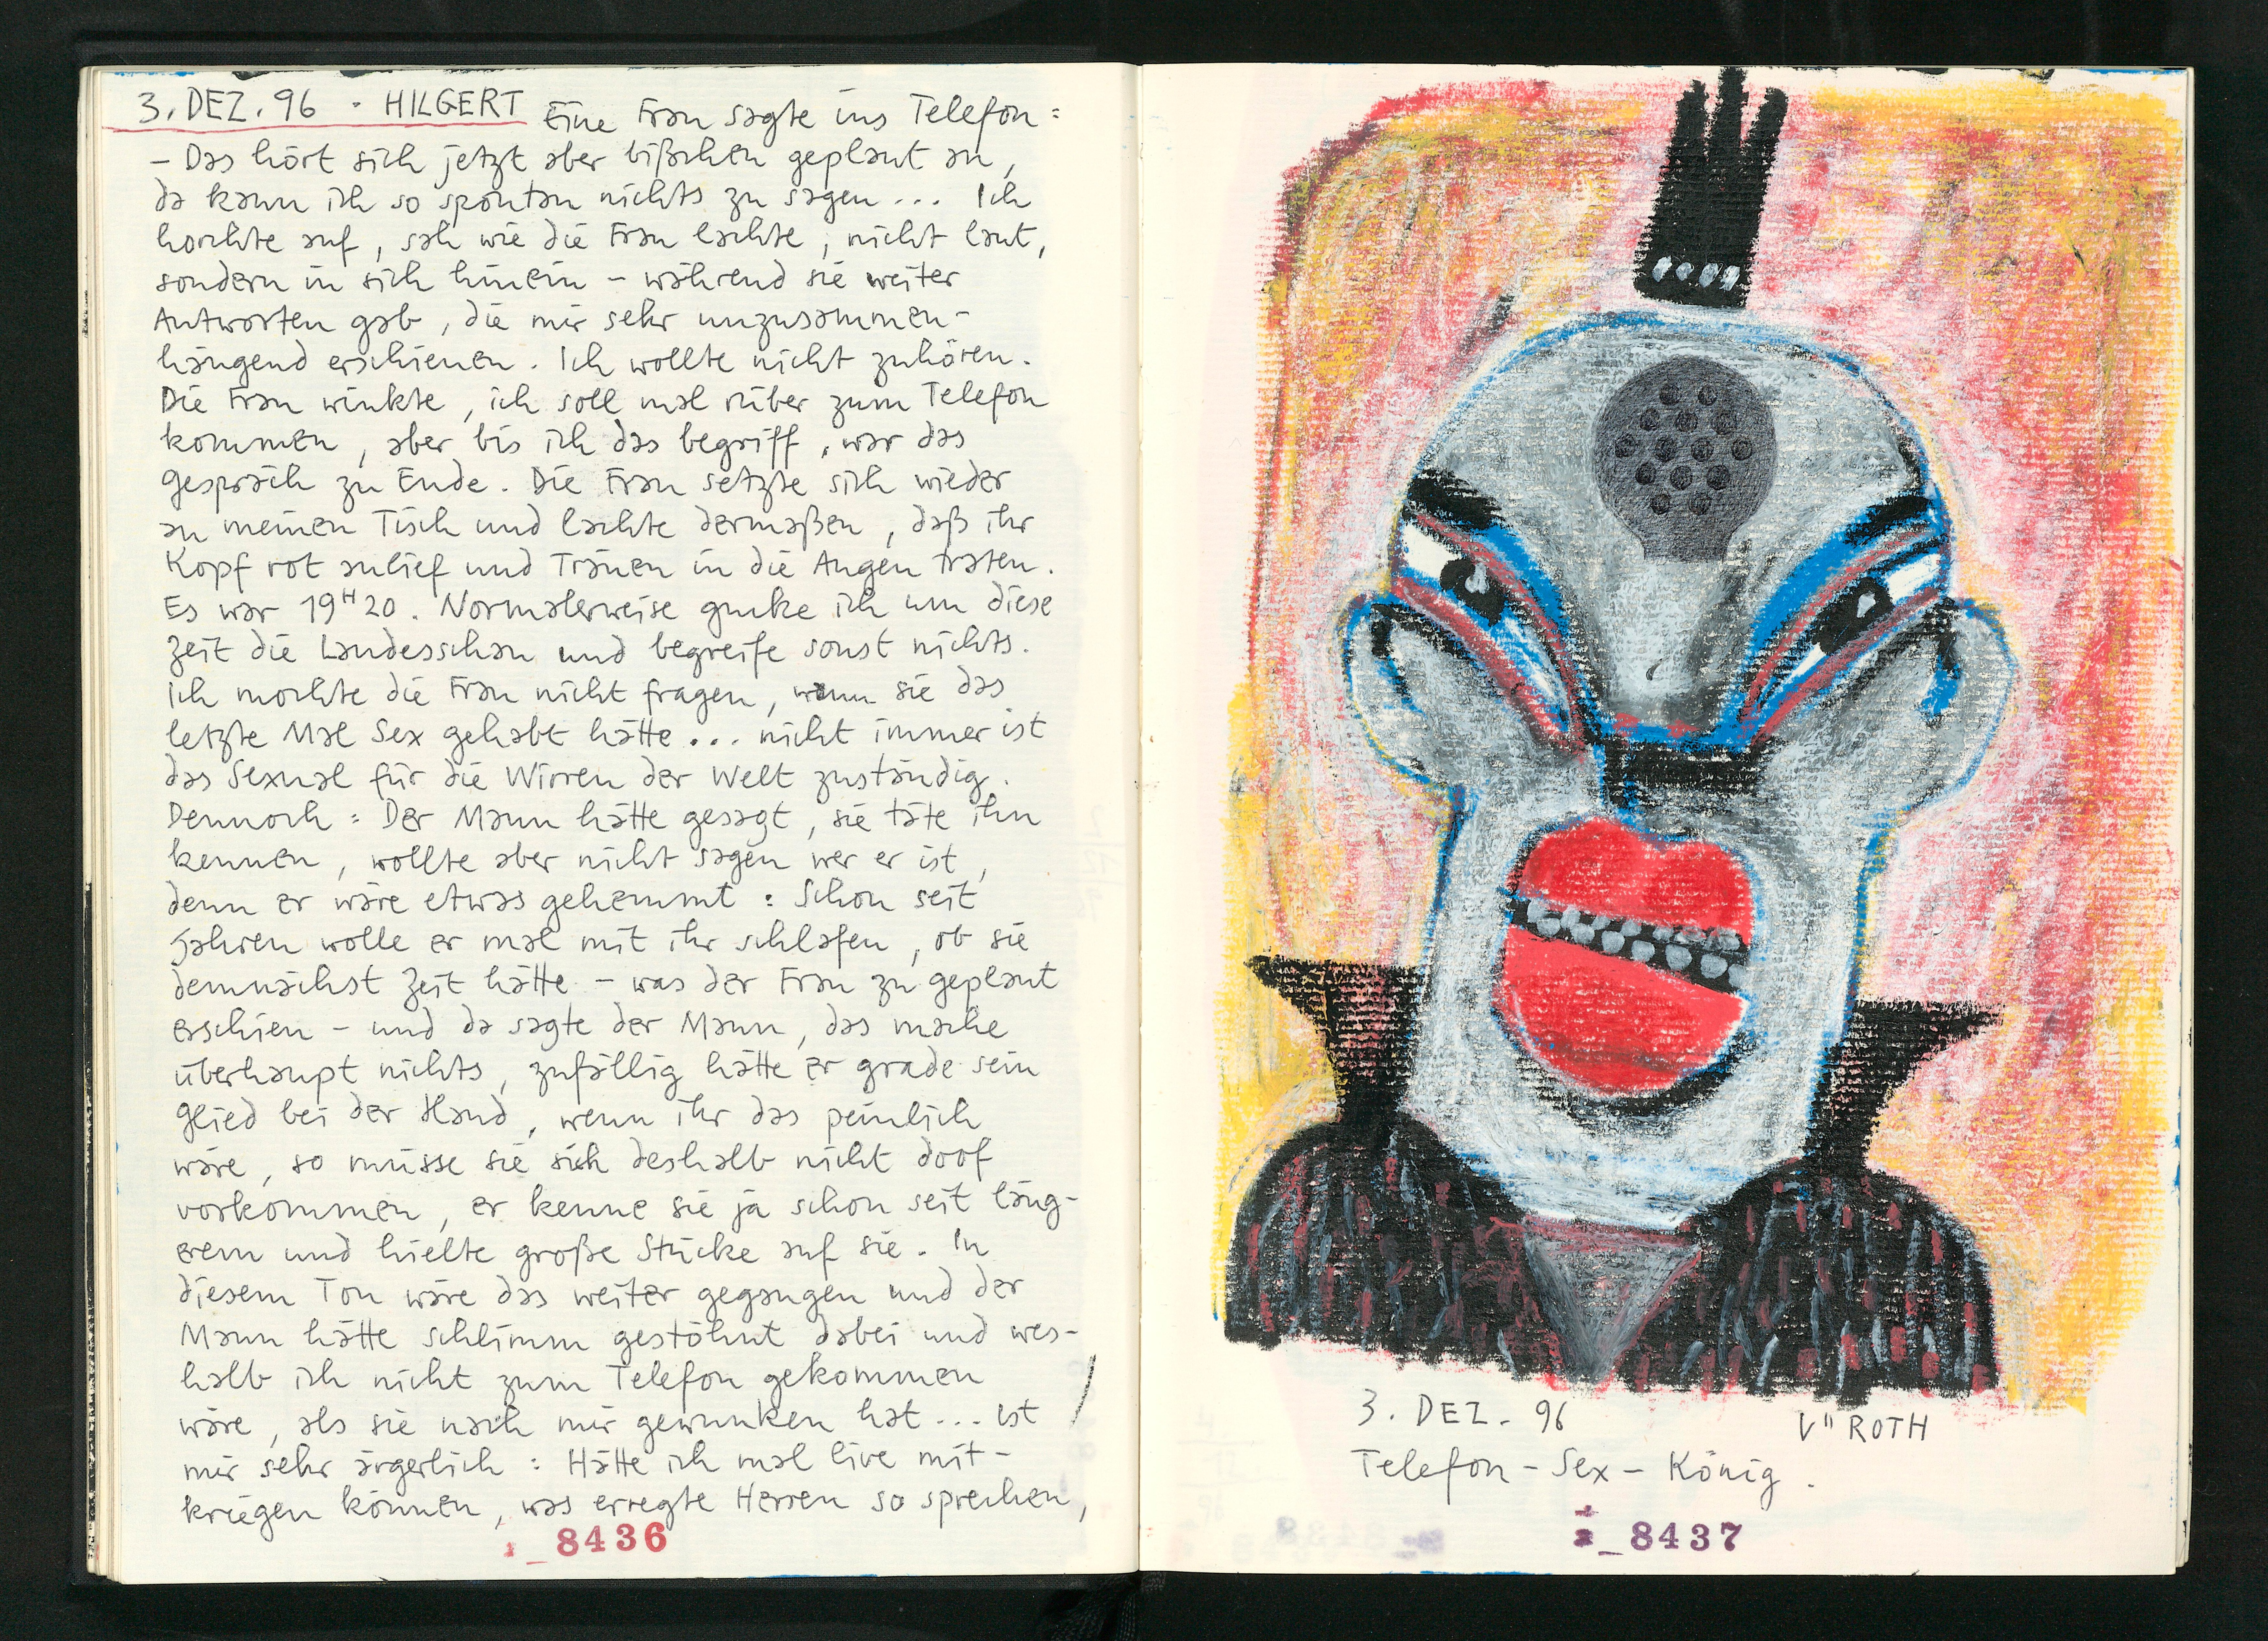 3. DEZ. 96 · HILGERT Eine Frau sagte ins Telefon:
– Das hört sich jetzt aber bißchen geplant an,
da kann ich so spontan nichts zu sagen... Ich
horchte auf, sah wie die Frau lachte, nicht laut,
sondern in sich hinein – während sie weiter
Antworten gab, die mir sehr unzusammen-
hängend erschienen. Ich wollte nicht zuhören.
Die Frau winkte, ich soll mal rüber zum Telefon
kommen, aber bis ich das begriff, war das
Gespräch zu Ende. Die Frau setzte sich wieder
an meinen Tisch und lachte dermaßen, daß ihr
Kopf rot anlief und Tränen in die Augen traten.
Es war 19H20. Normalerweise gucke ich um diese
Zeit die Landesschau und begreife sonst nichts.
Ich mochte die Frau nicht fragen, wann sie das
letzte Mal Sex gehabt hätte... nicht immer ist
das Sexual für die Wirren der Welt zuständig.
Dennoch: Der Mann hätte gesagt, sie täte ihn
kennen, wollte aber nicht sagen wer er ist,
denn er wäre etwas gehemmt: Schon seit
Jahren wolle er mal mit ihr schlafen, ob sie
demnächst Zeit hätte – was der Frau zu geplant
erschien – und da sagte der Mann, das mache
überhaupt nichts, zufällig hätte er grade sein
Glied bei der Hand, wenn ihr das peinlich
wäre, so müsse sie sich deshalb nicht doof
vorkommen, er kenne sie ja schon seit läng-
erem und hielte große Stücke auf sie. In
diesem Ton wäre das weiter gegangen und der
Mann hätte schlimm gestöhnt dabei und wes-
halb ich nicht zum Telefon gekommen
wäre, als sie nach mir gewunken hat... Ist
mir sehr ärgerlich: Hätte ich mal live mit-
kriegen können, was erregte Herren so sprechen,
8436
3. DEZ. 96
V" ROTH
Telefon-Sex-König.
8437